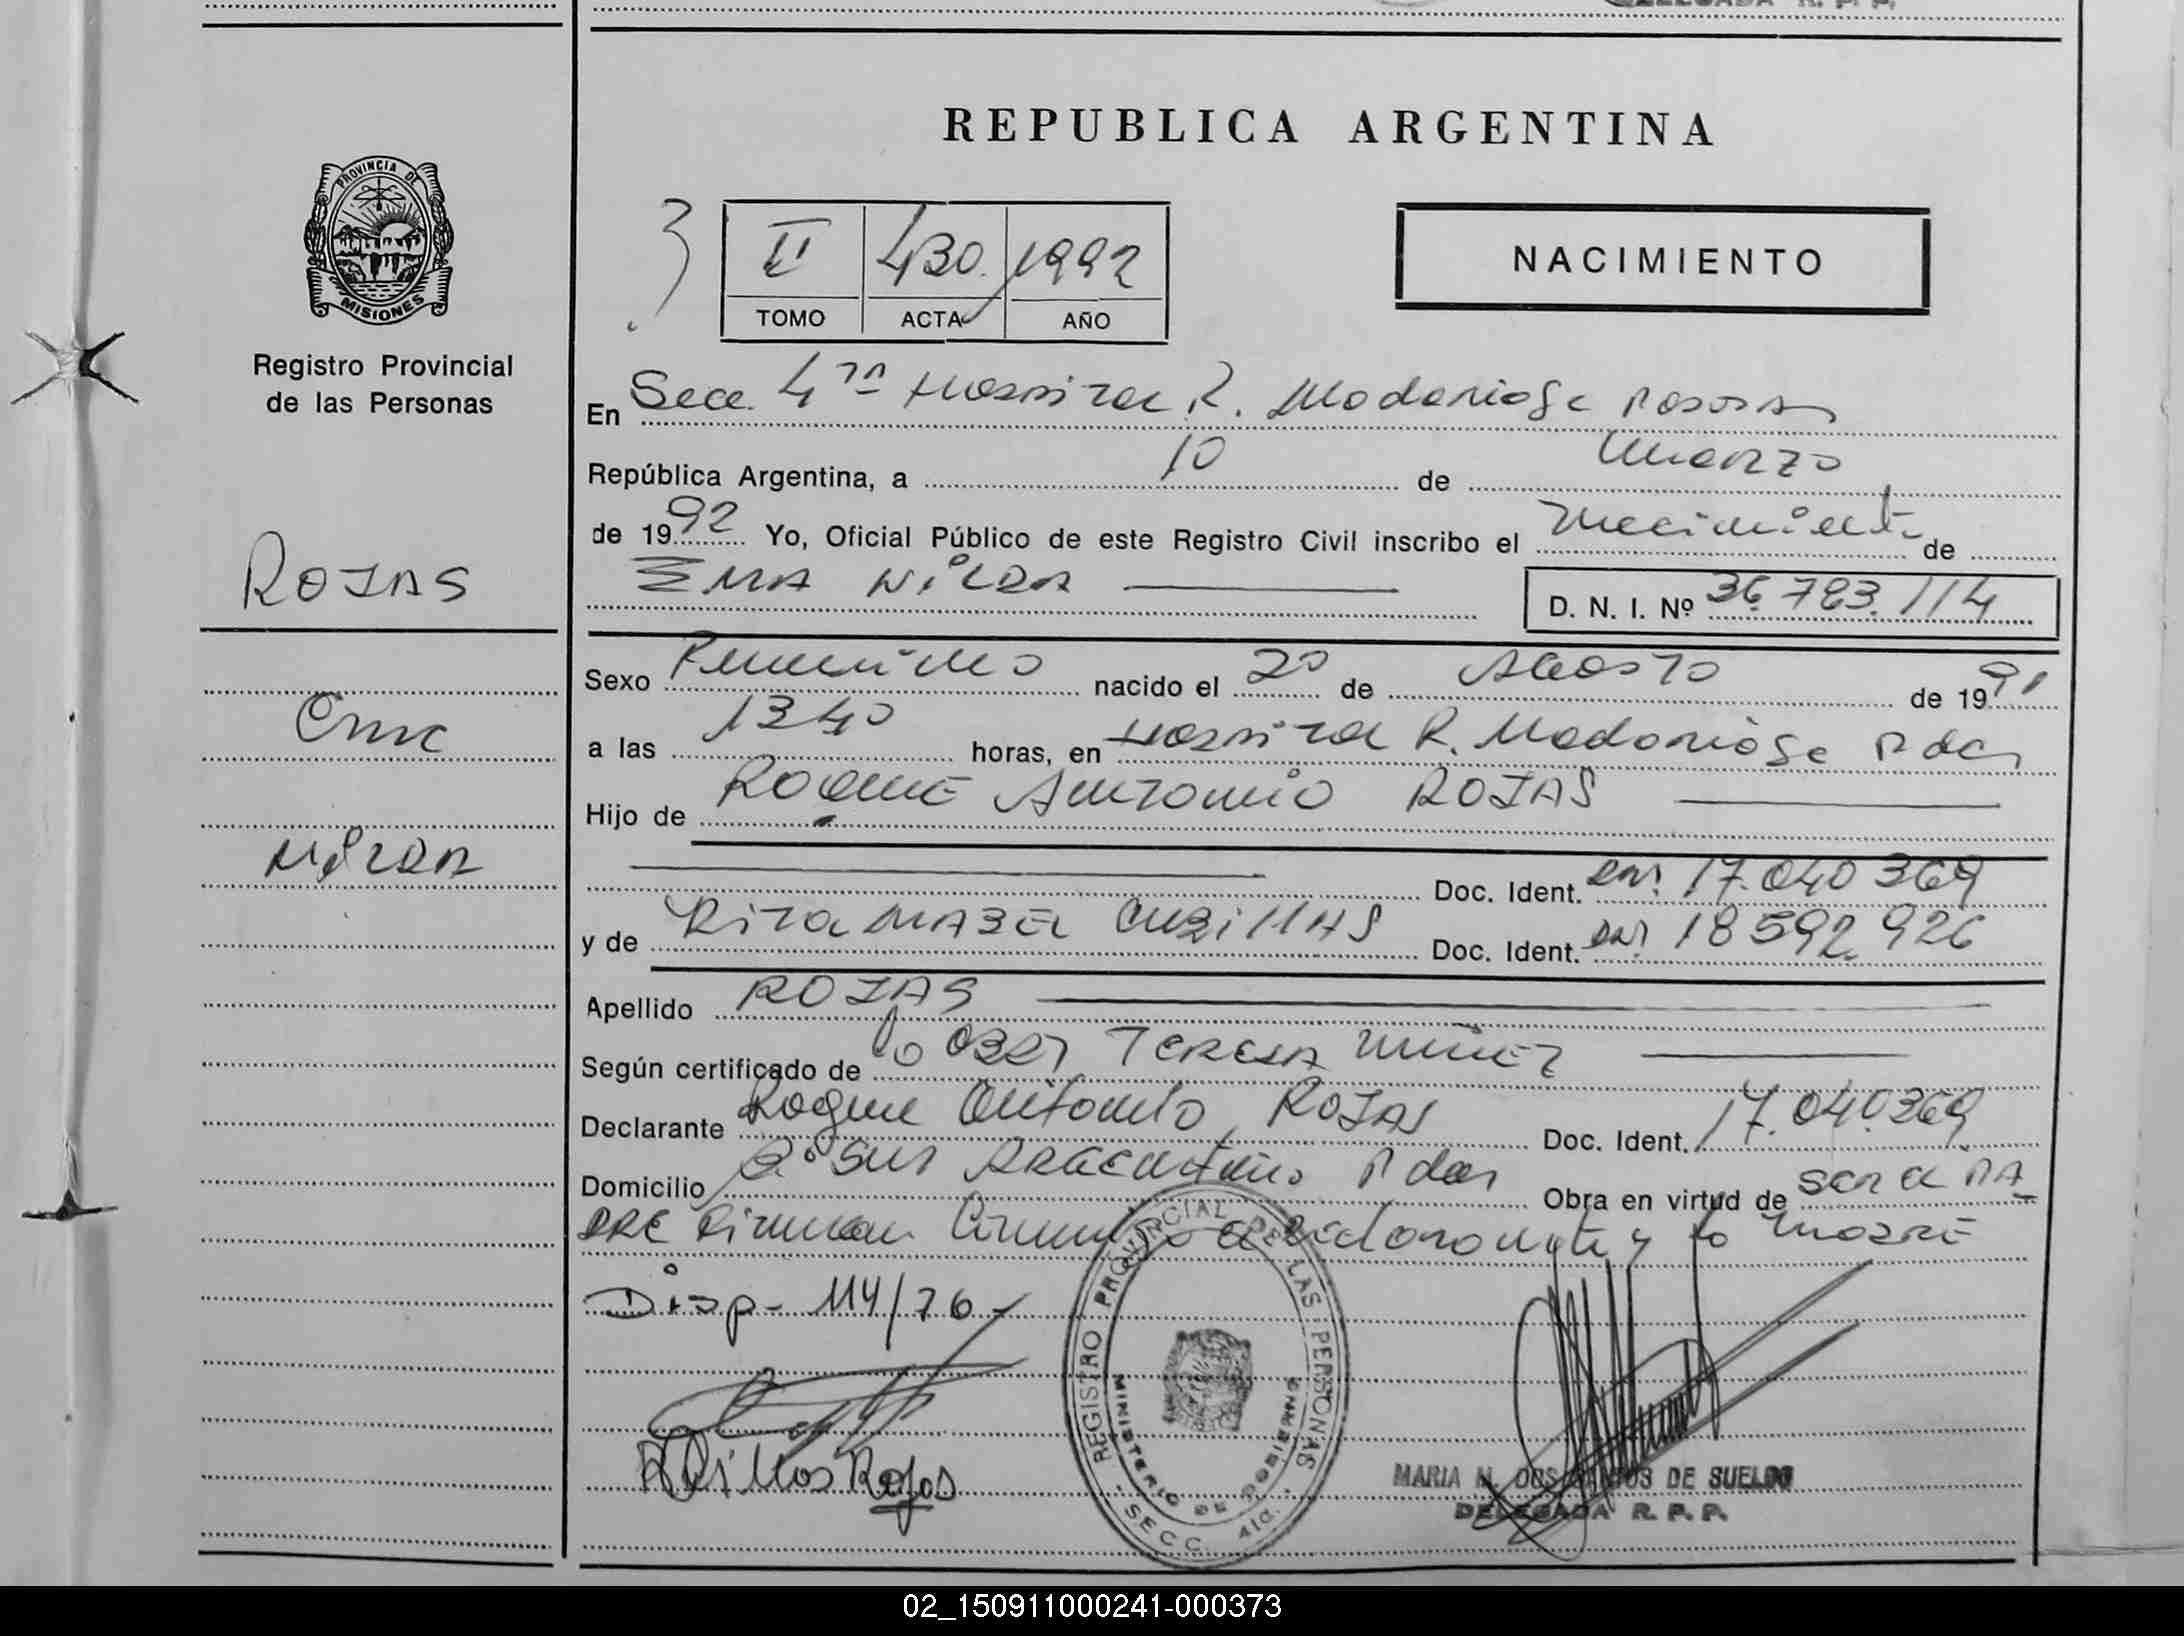 REPUBLICA ARGENTINA
PROVINCIA DE
MISIONES
Registro Provincial
de las Personas
II 430 1992
TOMO ACTA AÑO
NACIMIENTO
En Secc. 4ta Hospital R. Madariaga Posadas
República Argentina, a 10 de Marzo
de 1992 Yo, Oficial Público de este Registro Civil inscribo el Nacimiento de
ROJAS
EMA NILDA
D. N. I. Nº 36.783.114
Sexo Femenino nacido el 20 de Agosto de 1991
Ema
a las 1340 horas, en Hospital R. Madariaga Pdas
Hijo de ROQUE Antonio ROJAS
Nilda
Doc. Ident. DNI 17.040369
y de Rita MABEL Doc. Ident. DNI 18592926
Apellido ROJAS
Según certificado de TERESA
Declarante Roque Antonio ROJAS Doc. Ident. 17.040.369
Domicilio Pdas Obra en virtud de ser el PA
DRE Firman el declarante y la MADRE
Disp- 114/76-
Rojas
REGISTRO PROVINCIAL DE LAS PERSONAS
MINISTERIO DE GOBIERNO
SECC. 4ta.
MARIA N. DOS SANTOS DE SUELDO
DELEGADA R. P. P.
02_150911000241-000373